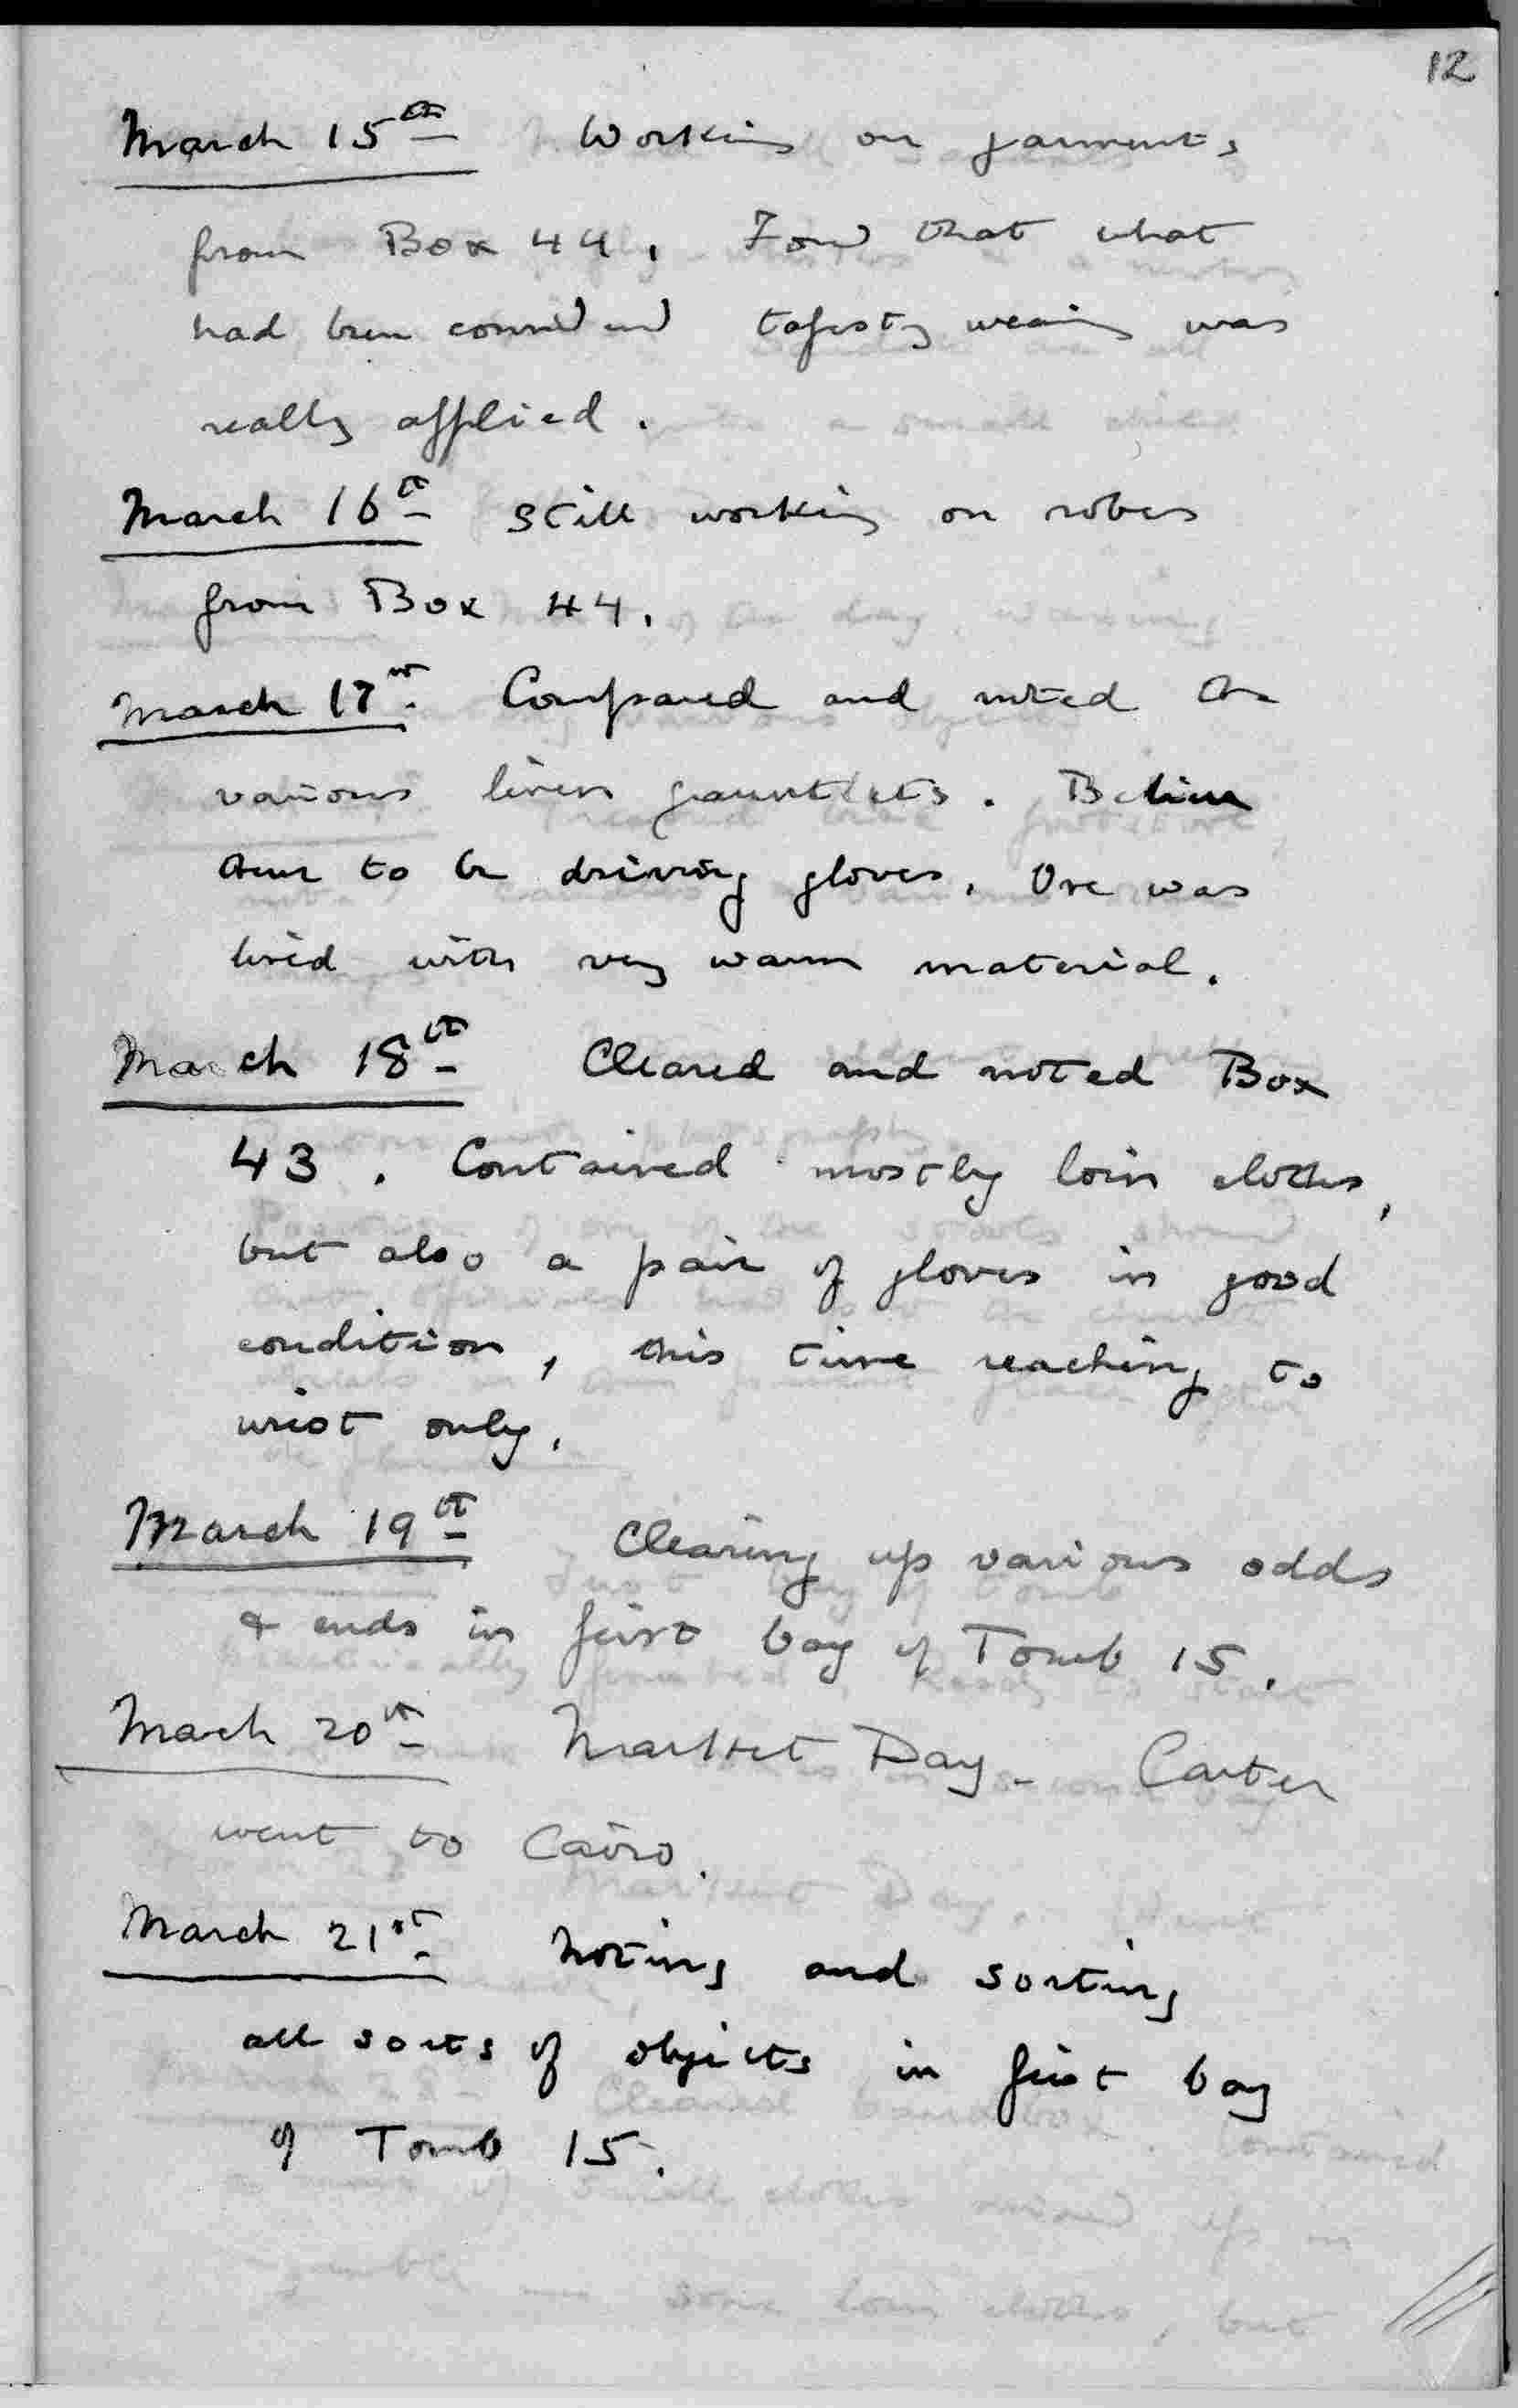 12
March 15th Working on garments
from Box 44. Found that what
had been considered tapestry weaving was
really applied.
March 16th Still working on robes
from Box 44.
March 17th Compared and noted the
various linen gauntlets. Believe
them to be driving gloves. One was
lined with very warm material.
March 18th Cleared and noted Box
43. Contained mostly loin cloths,
but also a pair of gloves in good
condition, this time reaching to
wrist only.
March 19th Clearing up various odds
& ends in first bay of Tomb 15.
March 20th Market Day - Carter
went to Cairo.
March 21st Noting and sorting
all sorts of objects in first bay
of Tomb 15.